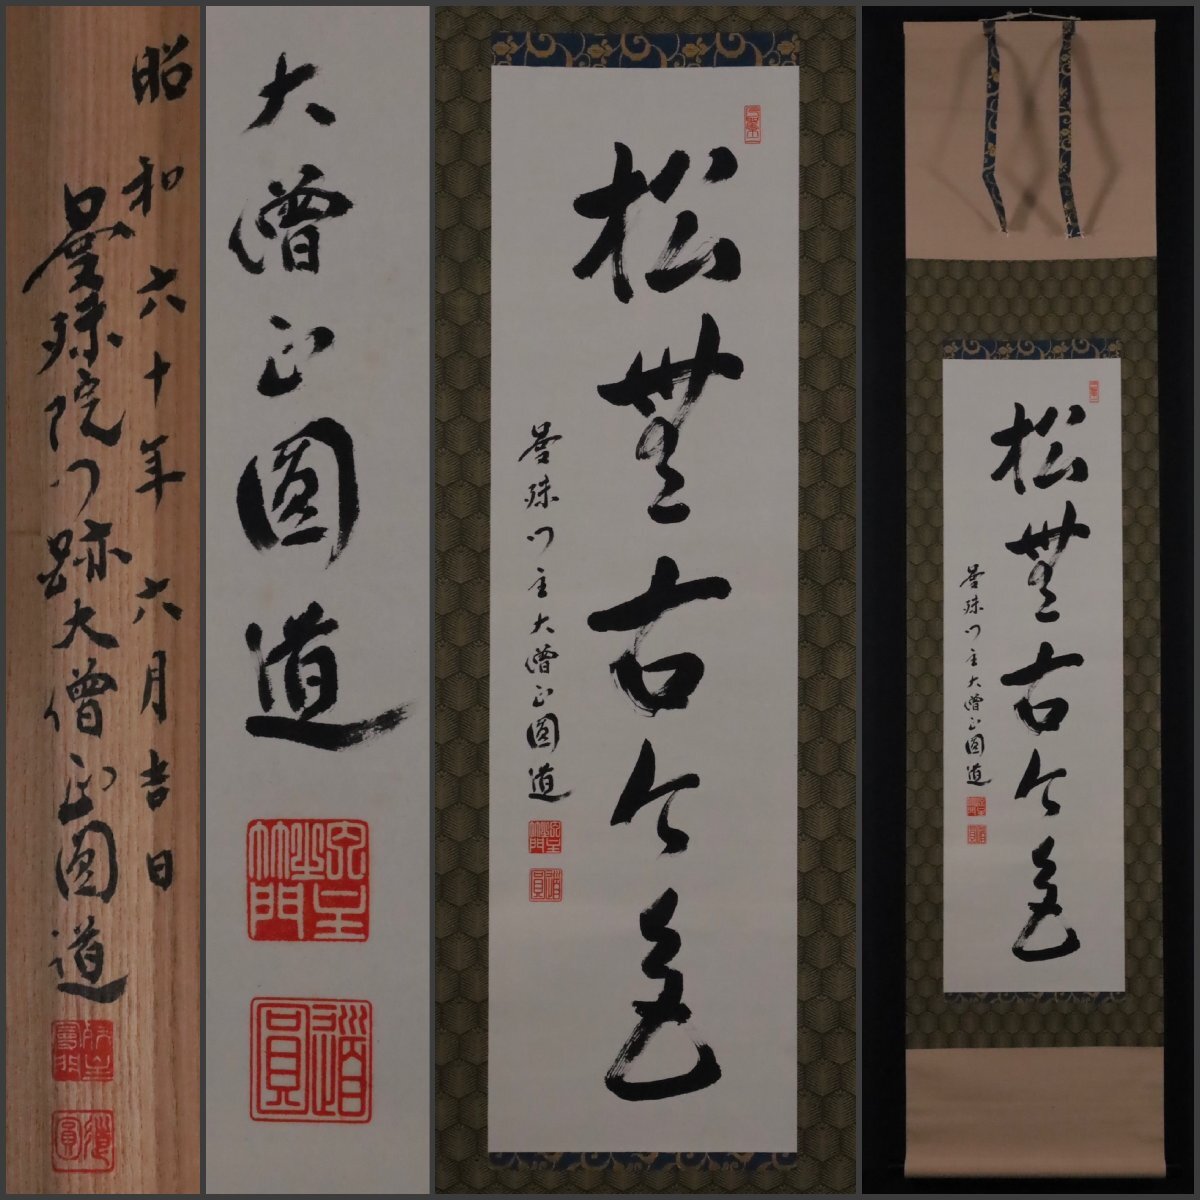 昭和六十年六月吉日
曼殊院門跡大僧正圓道
大僧正圓道
道圓
松無古今色
曼殊門主大僧正圓道
道圓
松無古今色
曼殊門主大僧正圓道